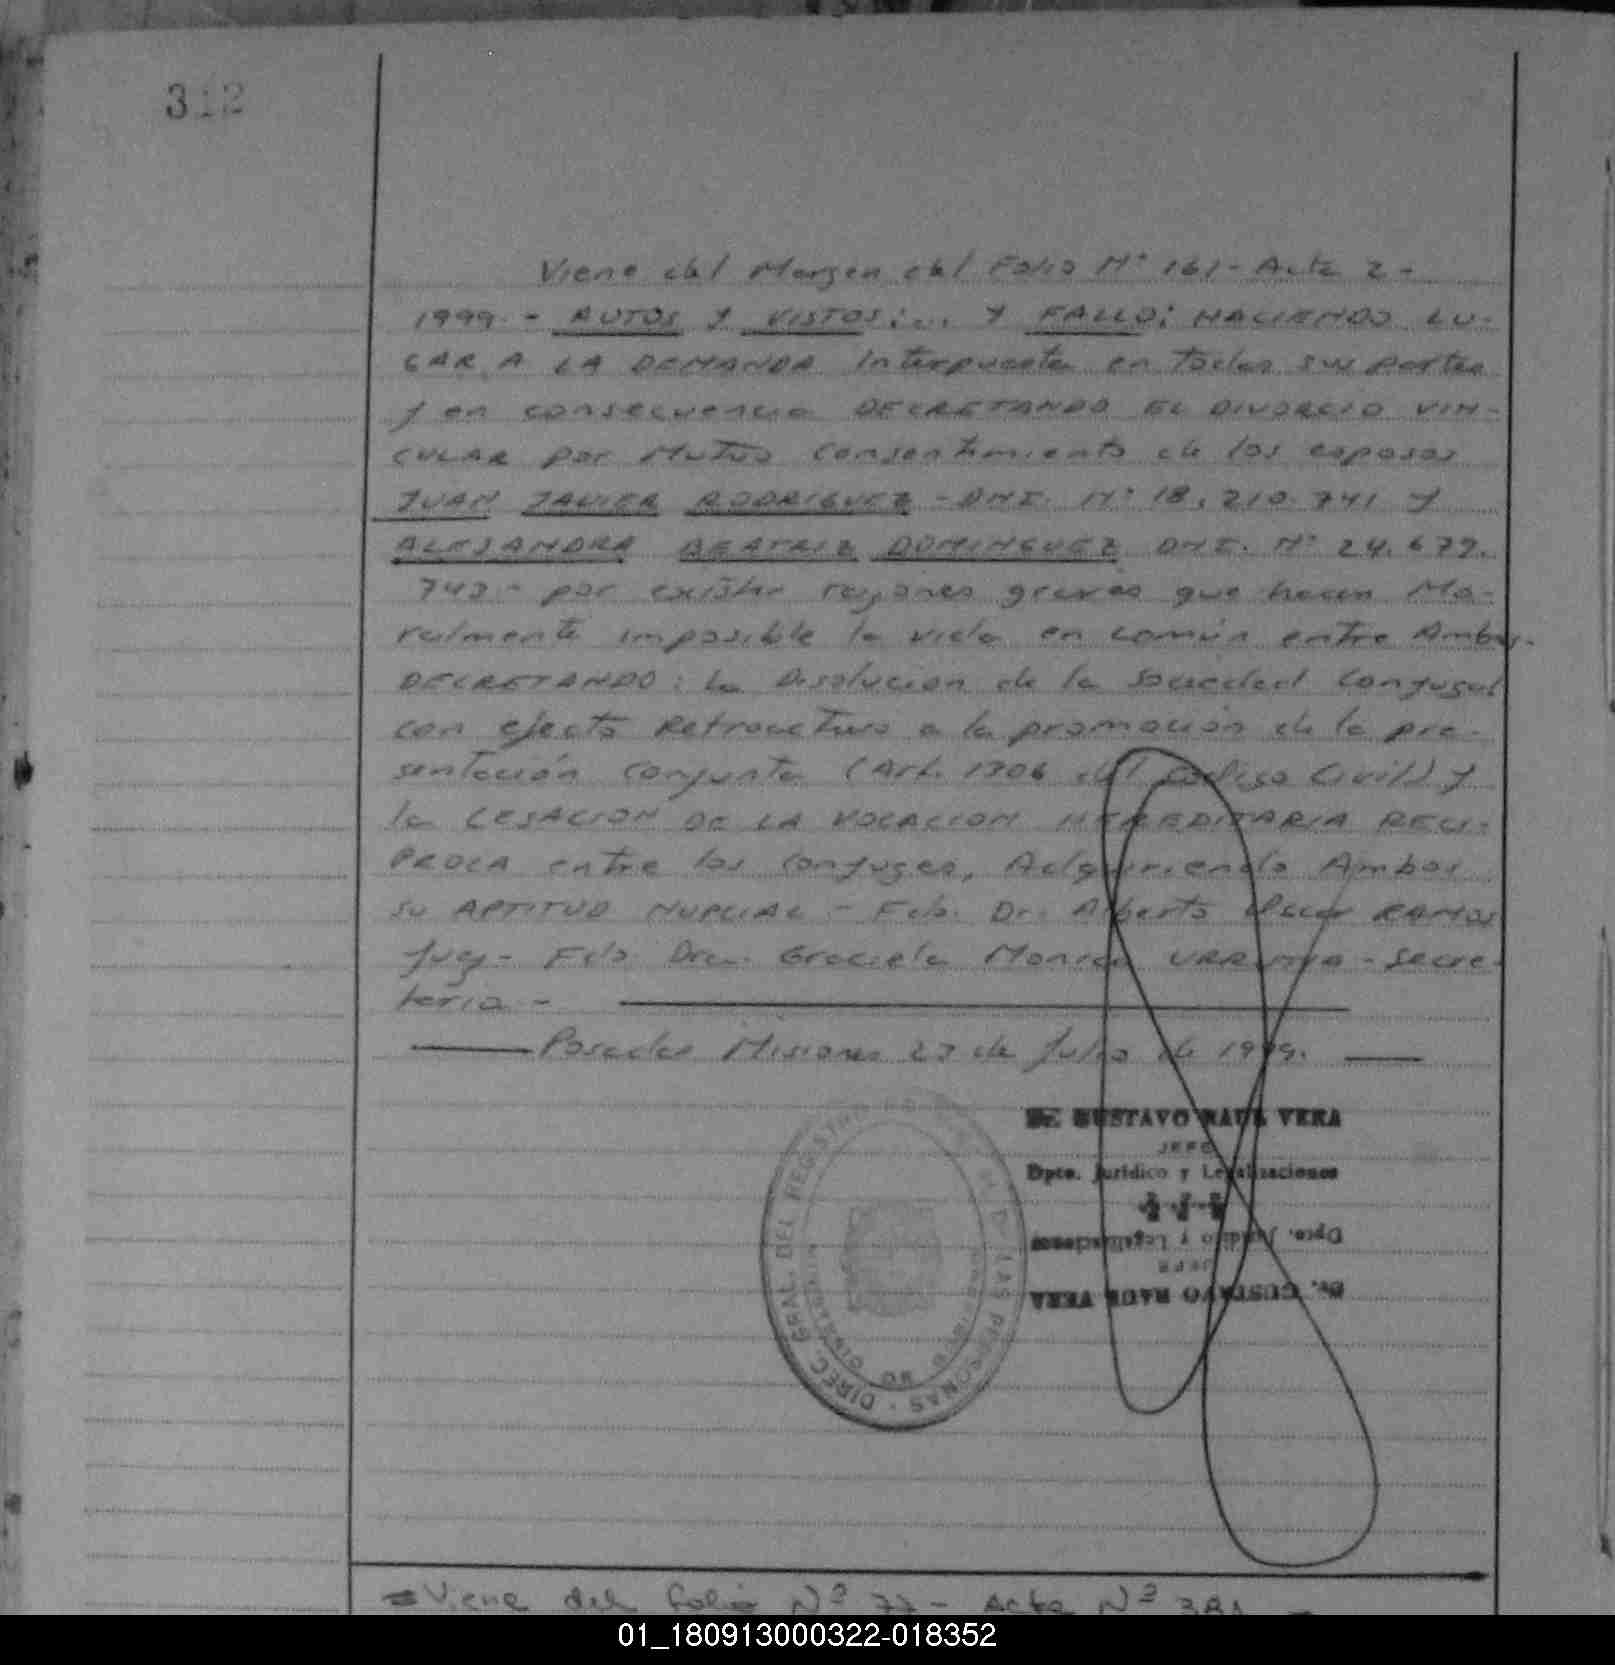 312
Viene del Margen del Folio Nº 161 - Acta 2 -
1999. - AUTOS Y VISTOS:... Y FALLO: HACIENDO LU-
GAR A LA DEMANDA Interpuesta en todas sus partes
y en consecuencia DECRETANDO EL DIVORCIO VIN-
CULAR por Mutuo Consentimiento de los esposos
JUAN JAVIER RODRIGUEZ - DNI. Nº 18.210.741 y
ALEJANDRA BEATRIZ DOMINGUEZ DNI. Nº 24.679.
743 - por existir razones graves que hacen Mo-
ralmente imposible la vida en común entre Ambos.
DECRETANDO: La Disolucion de la Sociedad Conyugal
con efecto Retroactivo a la promoción de la pre-
sentación Conjunta (Art. 1306 del Codigo Civil) y
la CESACION DE LA VOCACION HEREDITARIA RECI-
PROCA entre los Conyuges, Adquiriendo Ambos
su APTITUD NUPCIAL - Fdo. Dr. Alberto Oscar RAMOS
Juez - Fdo. Dra. Graciela Monica URRUTIA - Secre-
taria -
Posadas Misiones 27 de Julio de 1999.
Dr. GUSTAVO RAUL VERA
JEFE
Dpto. Jurídico y Legalizaciones
Dpto. Jurídico y Legalizaciones
JEFE
Dr. GUSTAVO RAUL VERA
DIREC. GRAL. DEL REGISTRO DE LAS PERSONAS
= Viene del folio Nº 77 - Acta Nº 381 -
01_180913000322-018352